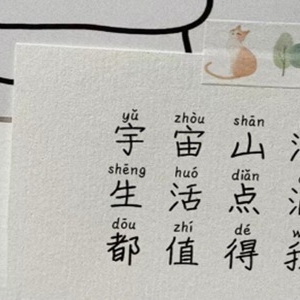 yǔ zhòu shān
宇宙山
shēng huó diǎn
生活点
dōu zhí dé
都值得